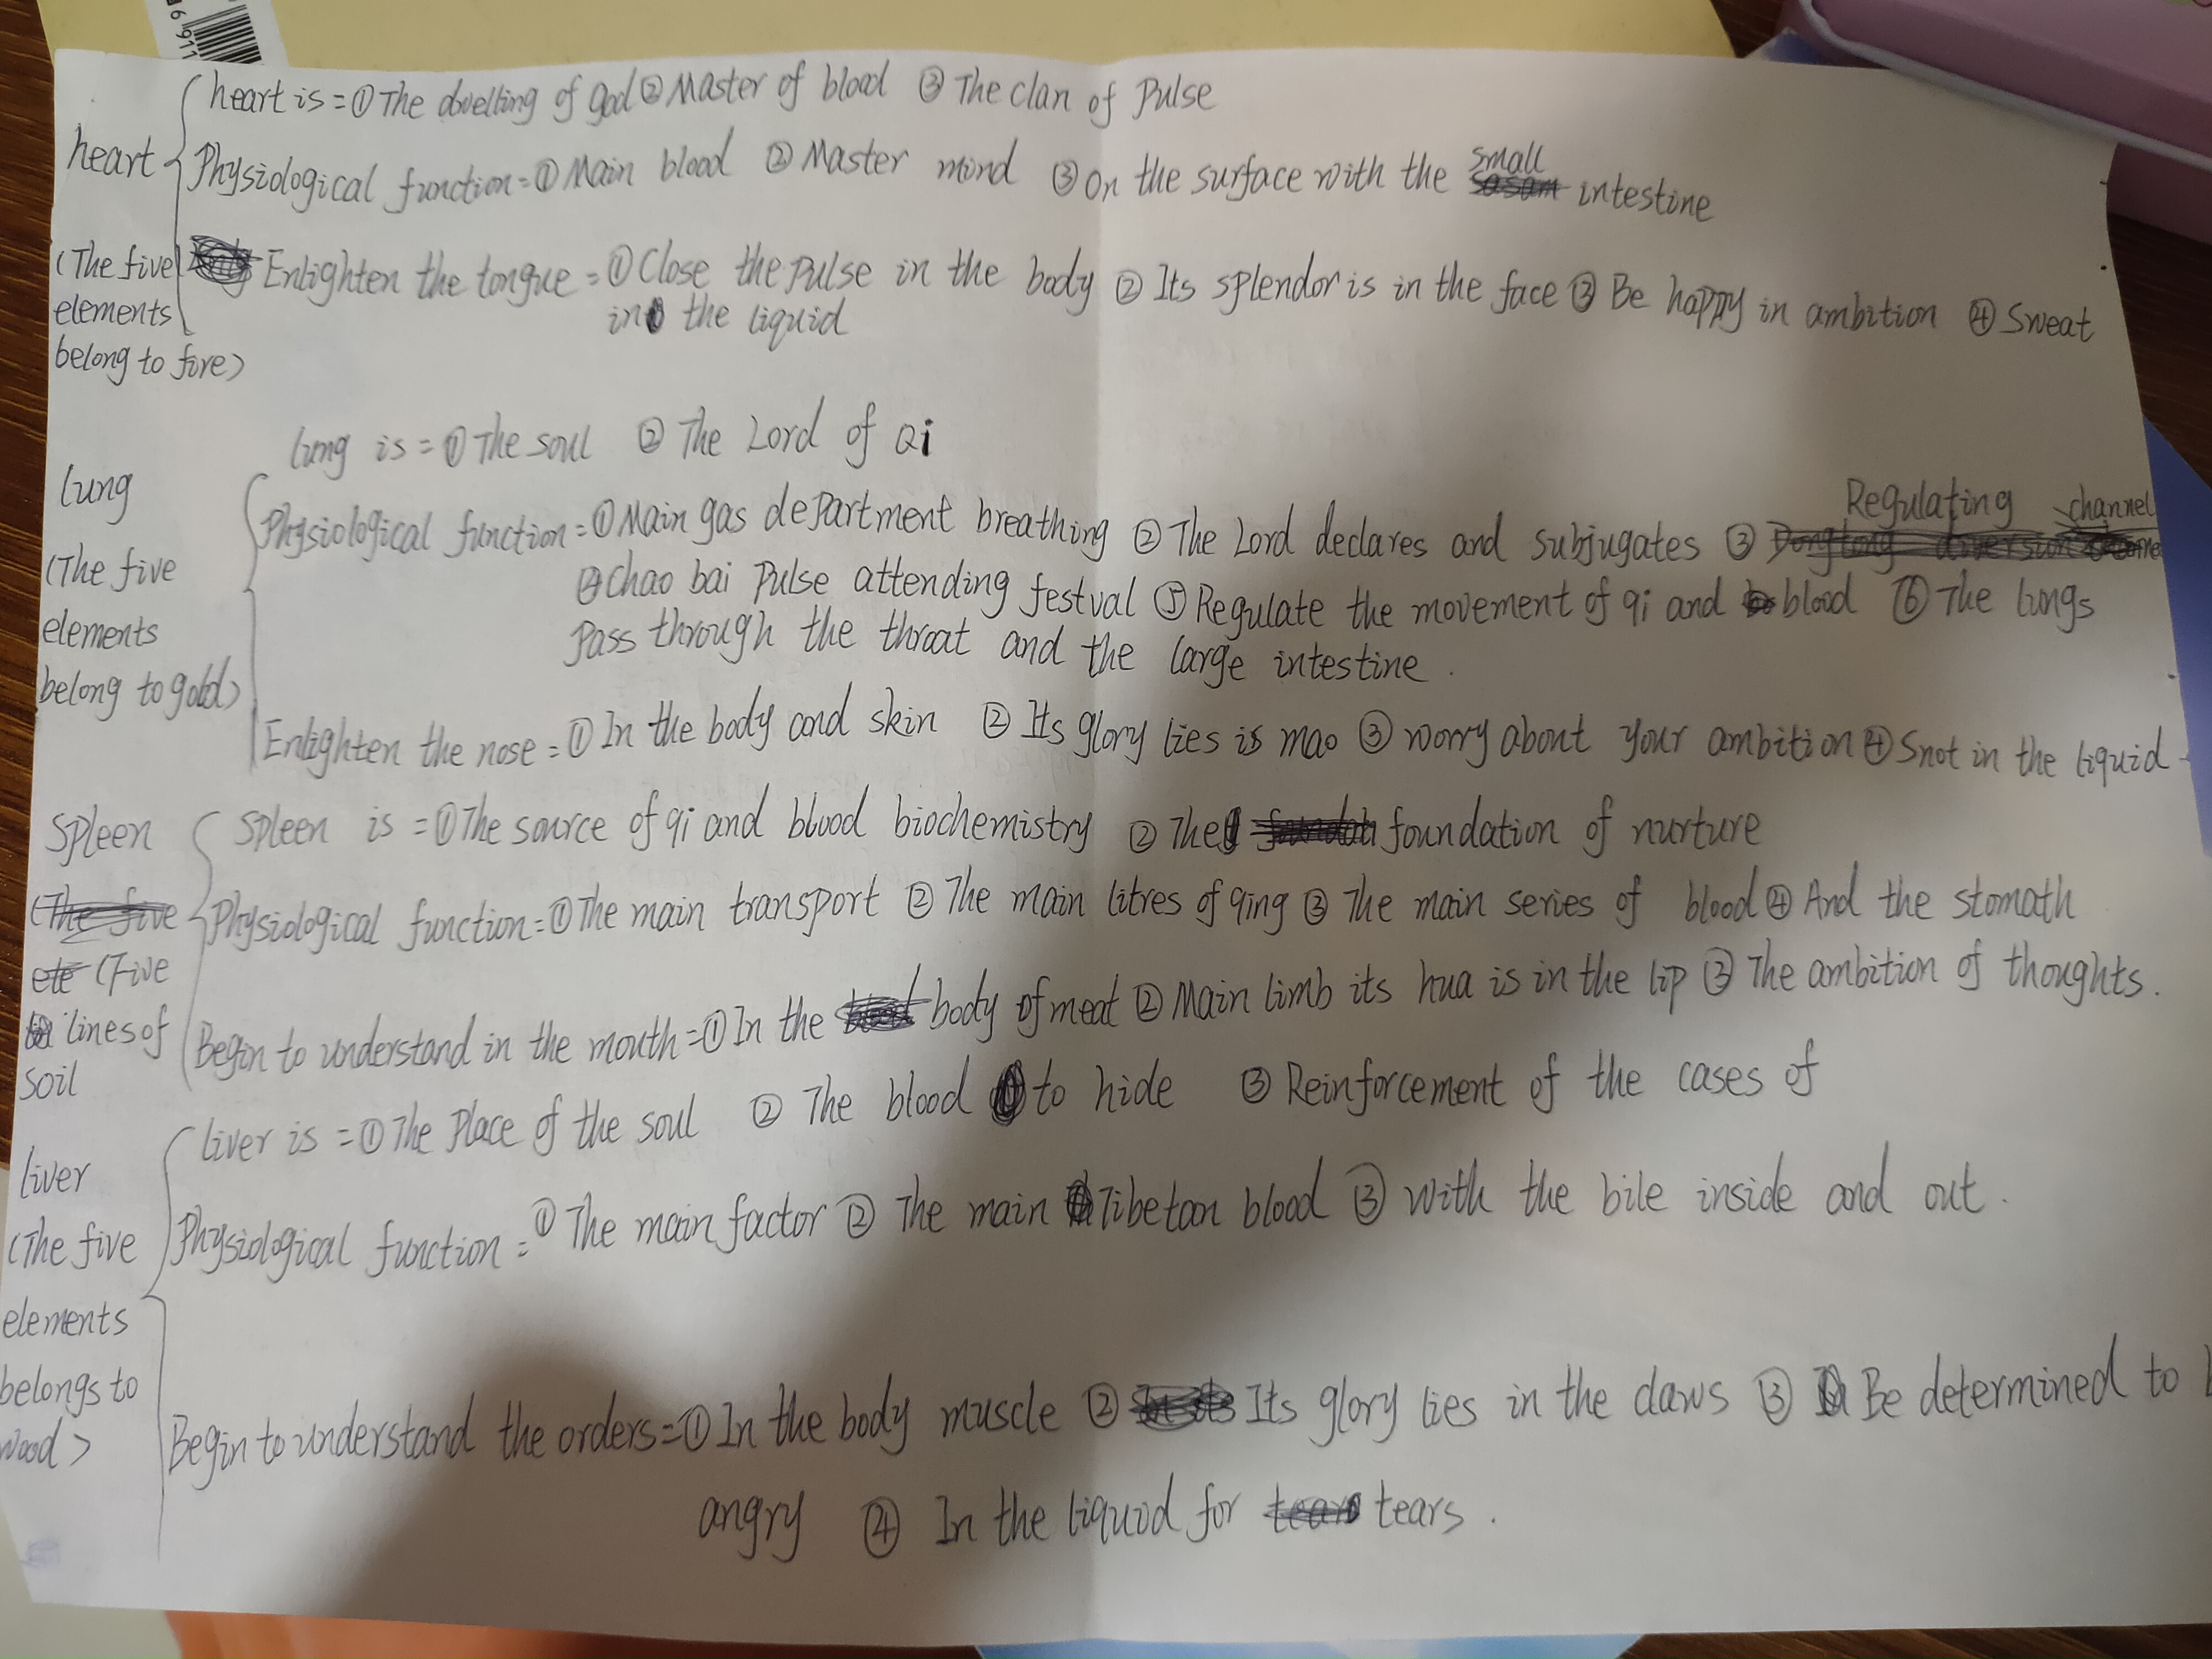 heart is = ① The dwelling of god ② Master of blood ③ The clan of Pulse
heart
Physiological function = ① Main blood ② Master mind ③ On the surface with the small intestine
(The five elements belong to fire)
Enlighten the tongue = ① Close the Pulse in the body ② Its splendor is in the face ③ Be happy in ambition ④ Sweat
in the liquid
lung is = ① The soul ② The Lord of Qi
lung
(The five elements belong to gold)
Physiological function = ① Main gas department breathing ② The Lord declares and subjugates ③ Regulating channel
④ Chao bai Pulse attending festval ⑤ Regulate the movement of qi and blood ⑥ The lungs
Pass through the throat and the large intestine.
Enlighten the nose = ① In the body and skin ② Its glory lies is mao ③ worry about your ambition ④ Snot in the liquid
Spleen
(Five lines of soil
Spleen is = ① The source of qi and blood biochemistry ② The foundation of nurture
Physiological function = ① The main transport ② The main litres of qing ③ The main series of blood ④ And the stomath
Begin to understand in the mouth = ① In the body of meat ② Main limb its hua is in the lip ③ The ambition of thoughts.
liver is = ① The Place of the soul ② The blood to hide ③ Reinforcement of the cases of
liver
(The five elements belongs to wood)
Physiological function = ① The main factor ② The main Tibetan blood ③ With the bile inside and out.
Begin to understand the orders = ① In the body muscle ② Its glory lies in the claws ③ Be determined to
angry ④ In the liquid for tears.